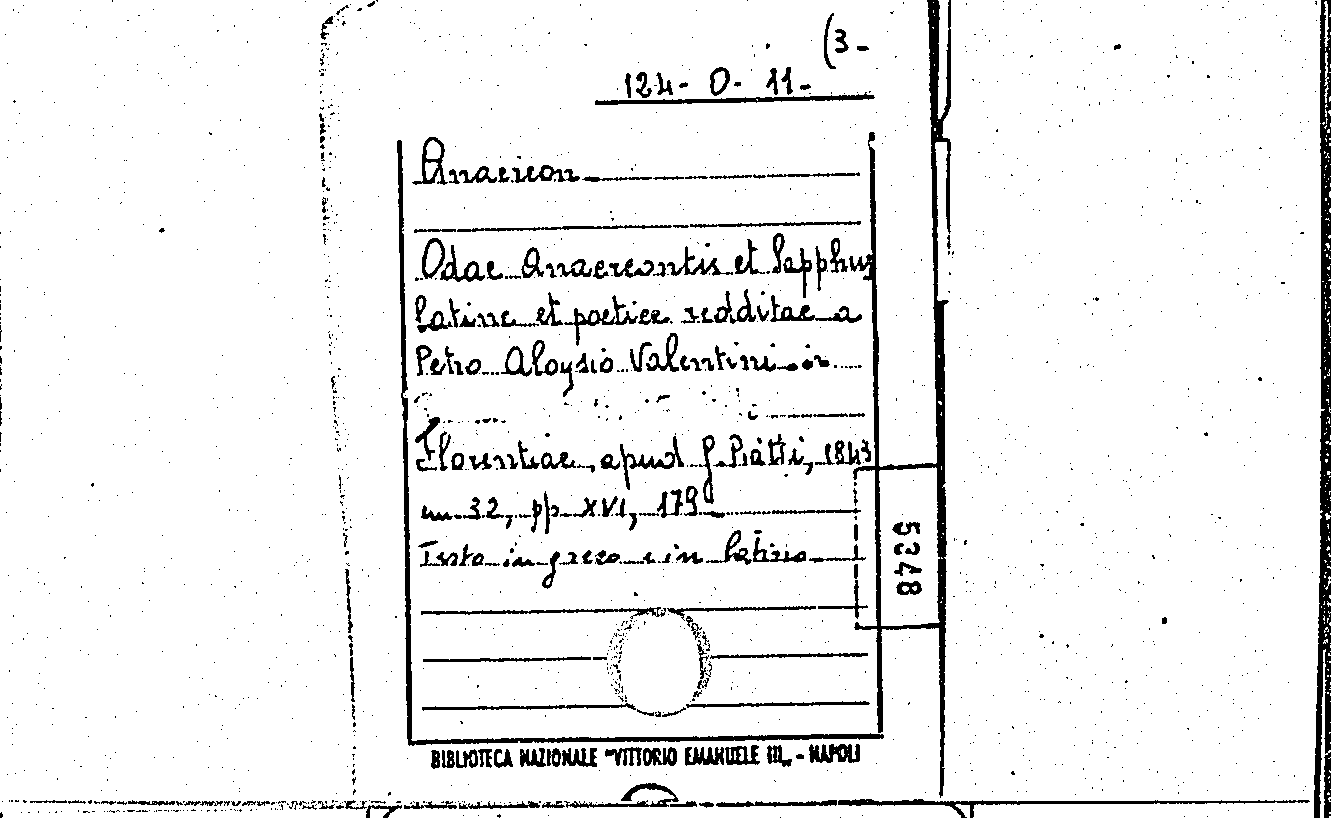 (3-
124- O- 11-
Anacreon
Odae Anacreontis et Sapphus
latine et poetice redditae a
Petro Aloysio Valentini in
Florentiae, apud G. Piatti, 1843
in 32, pp XVI, 179
Testo in greco e in latino
5348
BIBLIOTECA NAZIONALE "VITTORIO EMANUELE III„ - NAPOLI